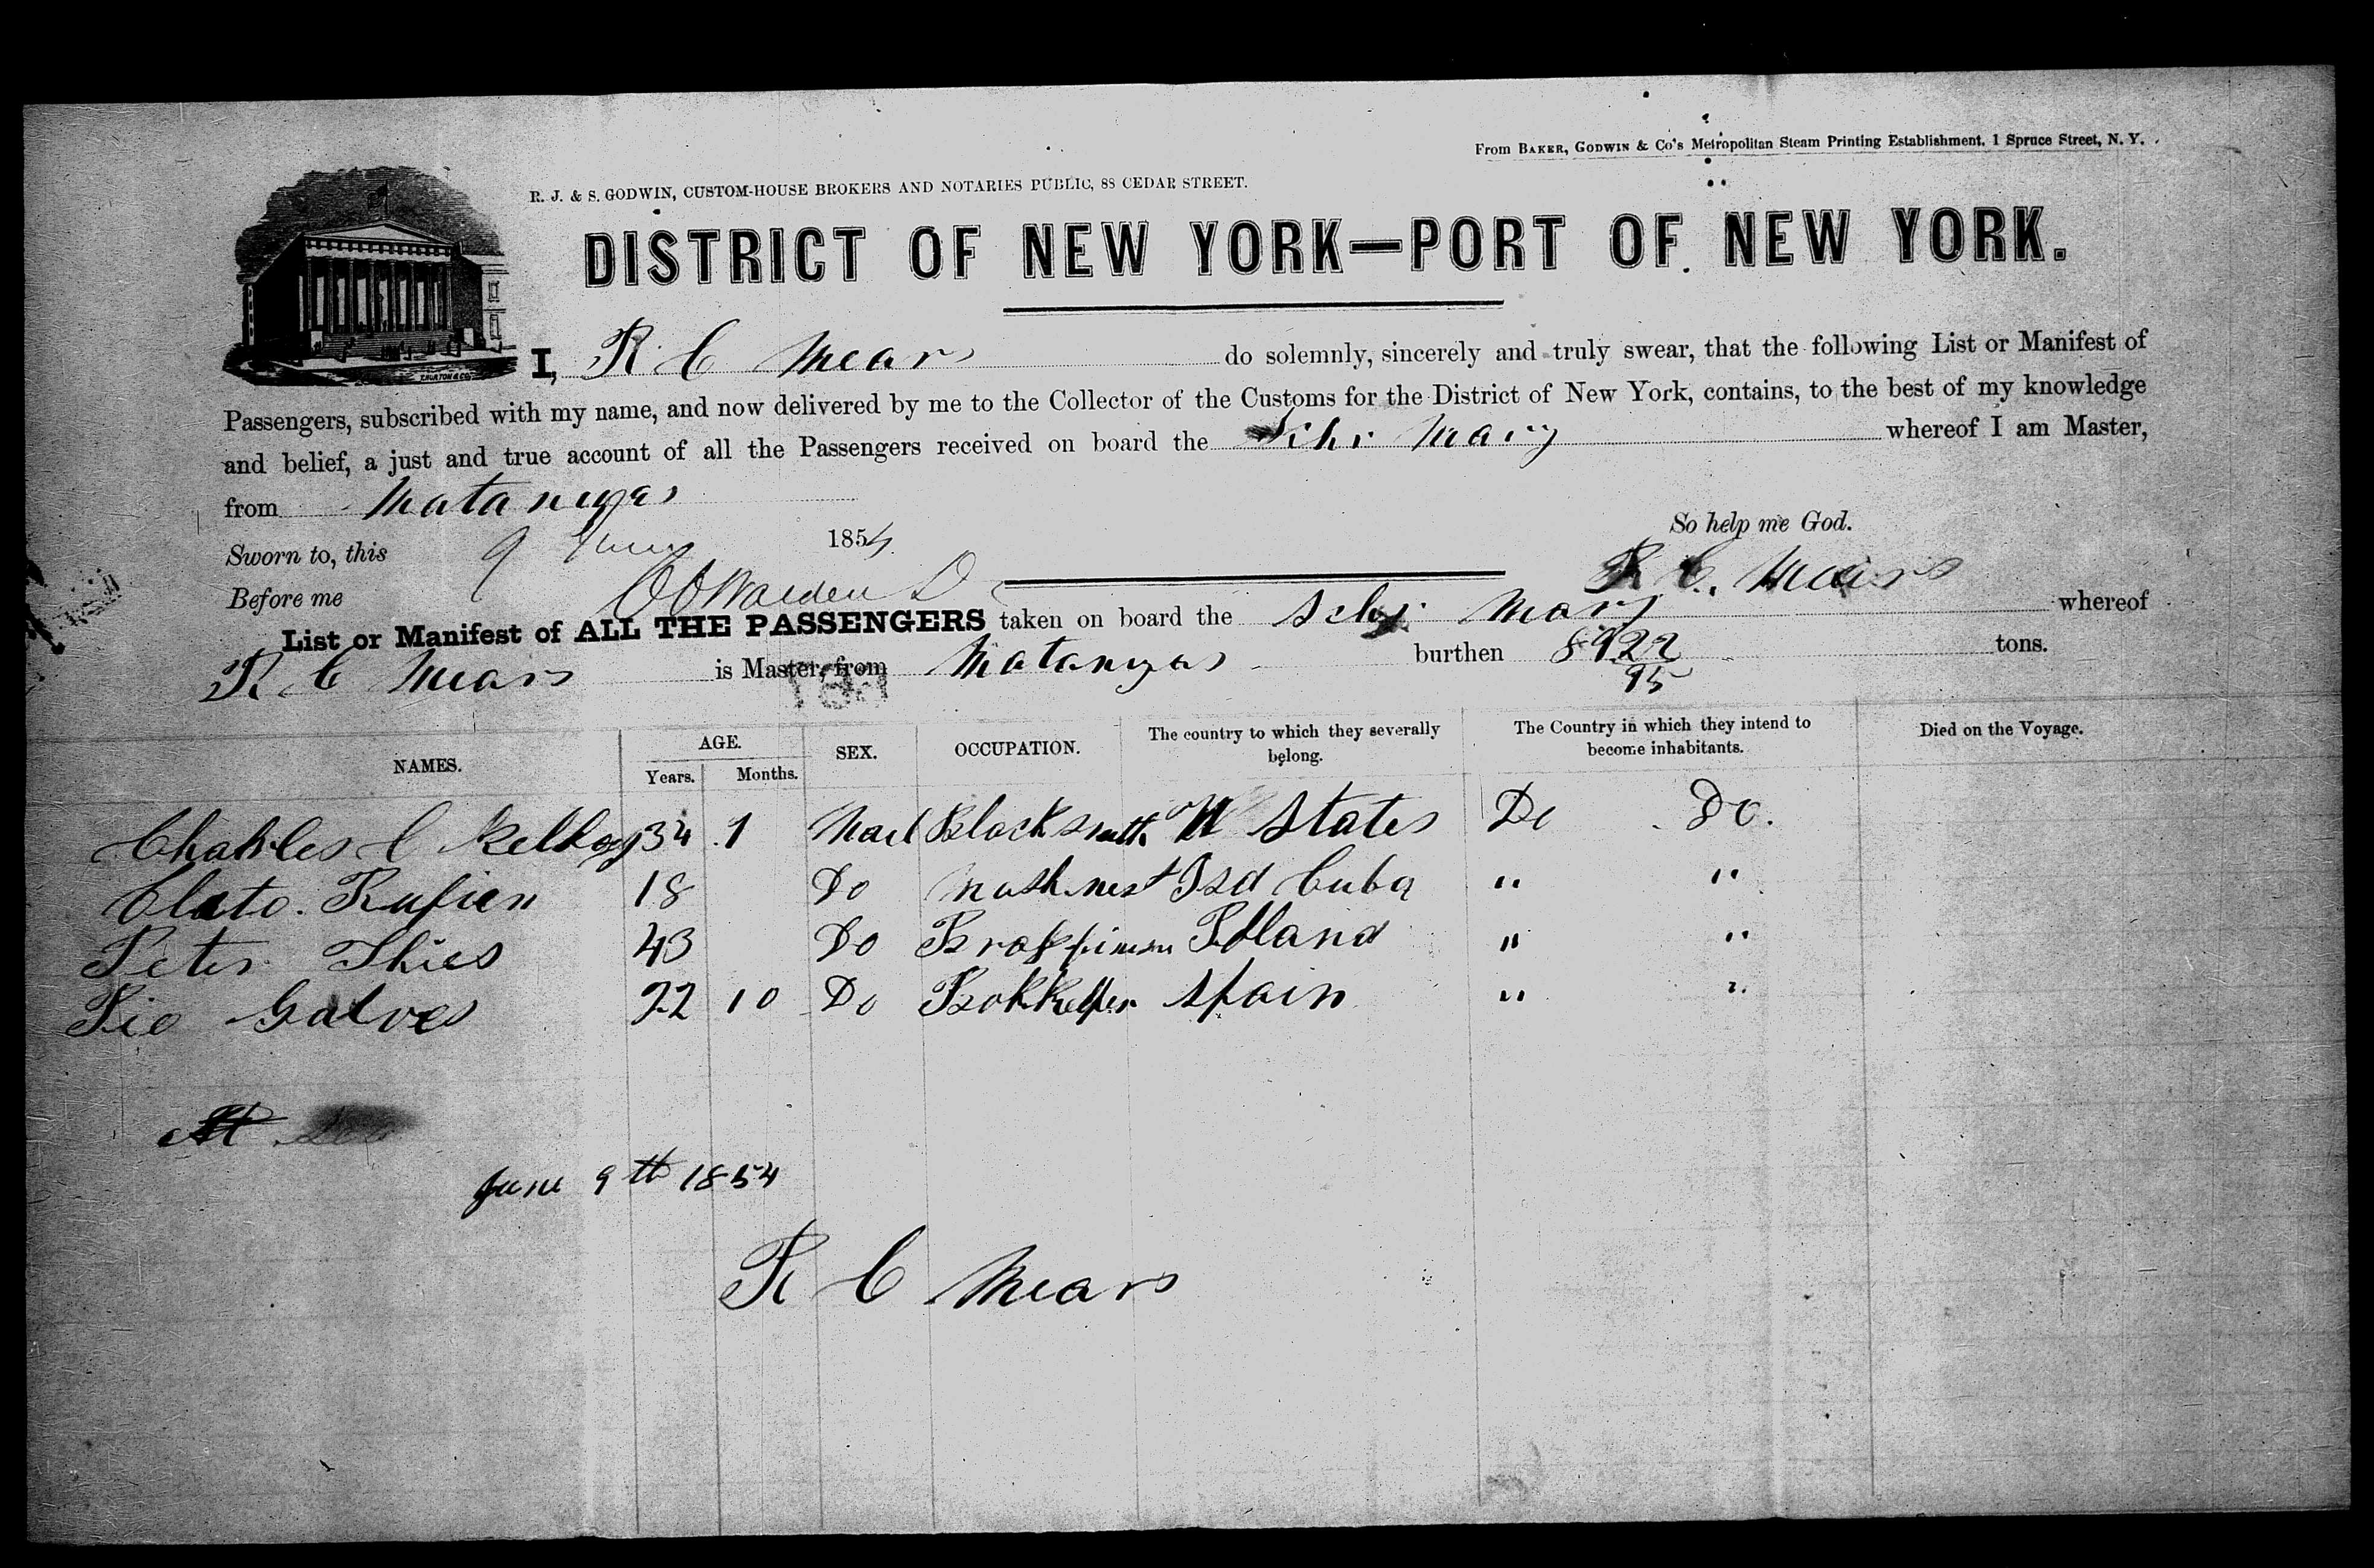 From BAKER, GODWIN & Co's Metropolitan Steam Printing Establishment, 1 Spruce Street, N. Y.
R. J. & S. GODWIN, CUSTOM-HOUSE BROKERS AND NOTARIES PUBLIC, 88 CEDAR STREET.
DISTRICT OF NEW YORK—PORT OF NEW YORK.
I, R. C Mears do solemnly, sincerely and truly swear, that the following List or Manifest of
Passengers, subscribed with my name, and now delivered by me to the Collector of the Customs for the District of New York, contains, to the best of my knowledge
and belief, a just and true account of all the Passengers received on board the Schr Mary whereof I am Master,
from Matanzas
So help me God.
Sworn to, this 9 June 1854
R. C. Mears
Before me
List or Manifest of ALL THE PASSENGERS taken on board the Schr Mary whereof
R C Mears is Master, from Matanzas burthen 89 22/95 tons.
NAMES. AGE. Years. Months. SEX. OCCUPATION. The country to which they severally belong. The Country in which they intend to become inhabitants. Died on the Voyage.
Charles C Kellogg 34 1 Mael Blacksmith U States Do Do.
Rufien 18 Do Isd Cuba " "
Peter Thies 43 Do Poland " "
Pio Galves 22 10 Do Bokkelper Spain " "
June 9th 1854
R C Mears